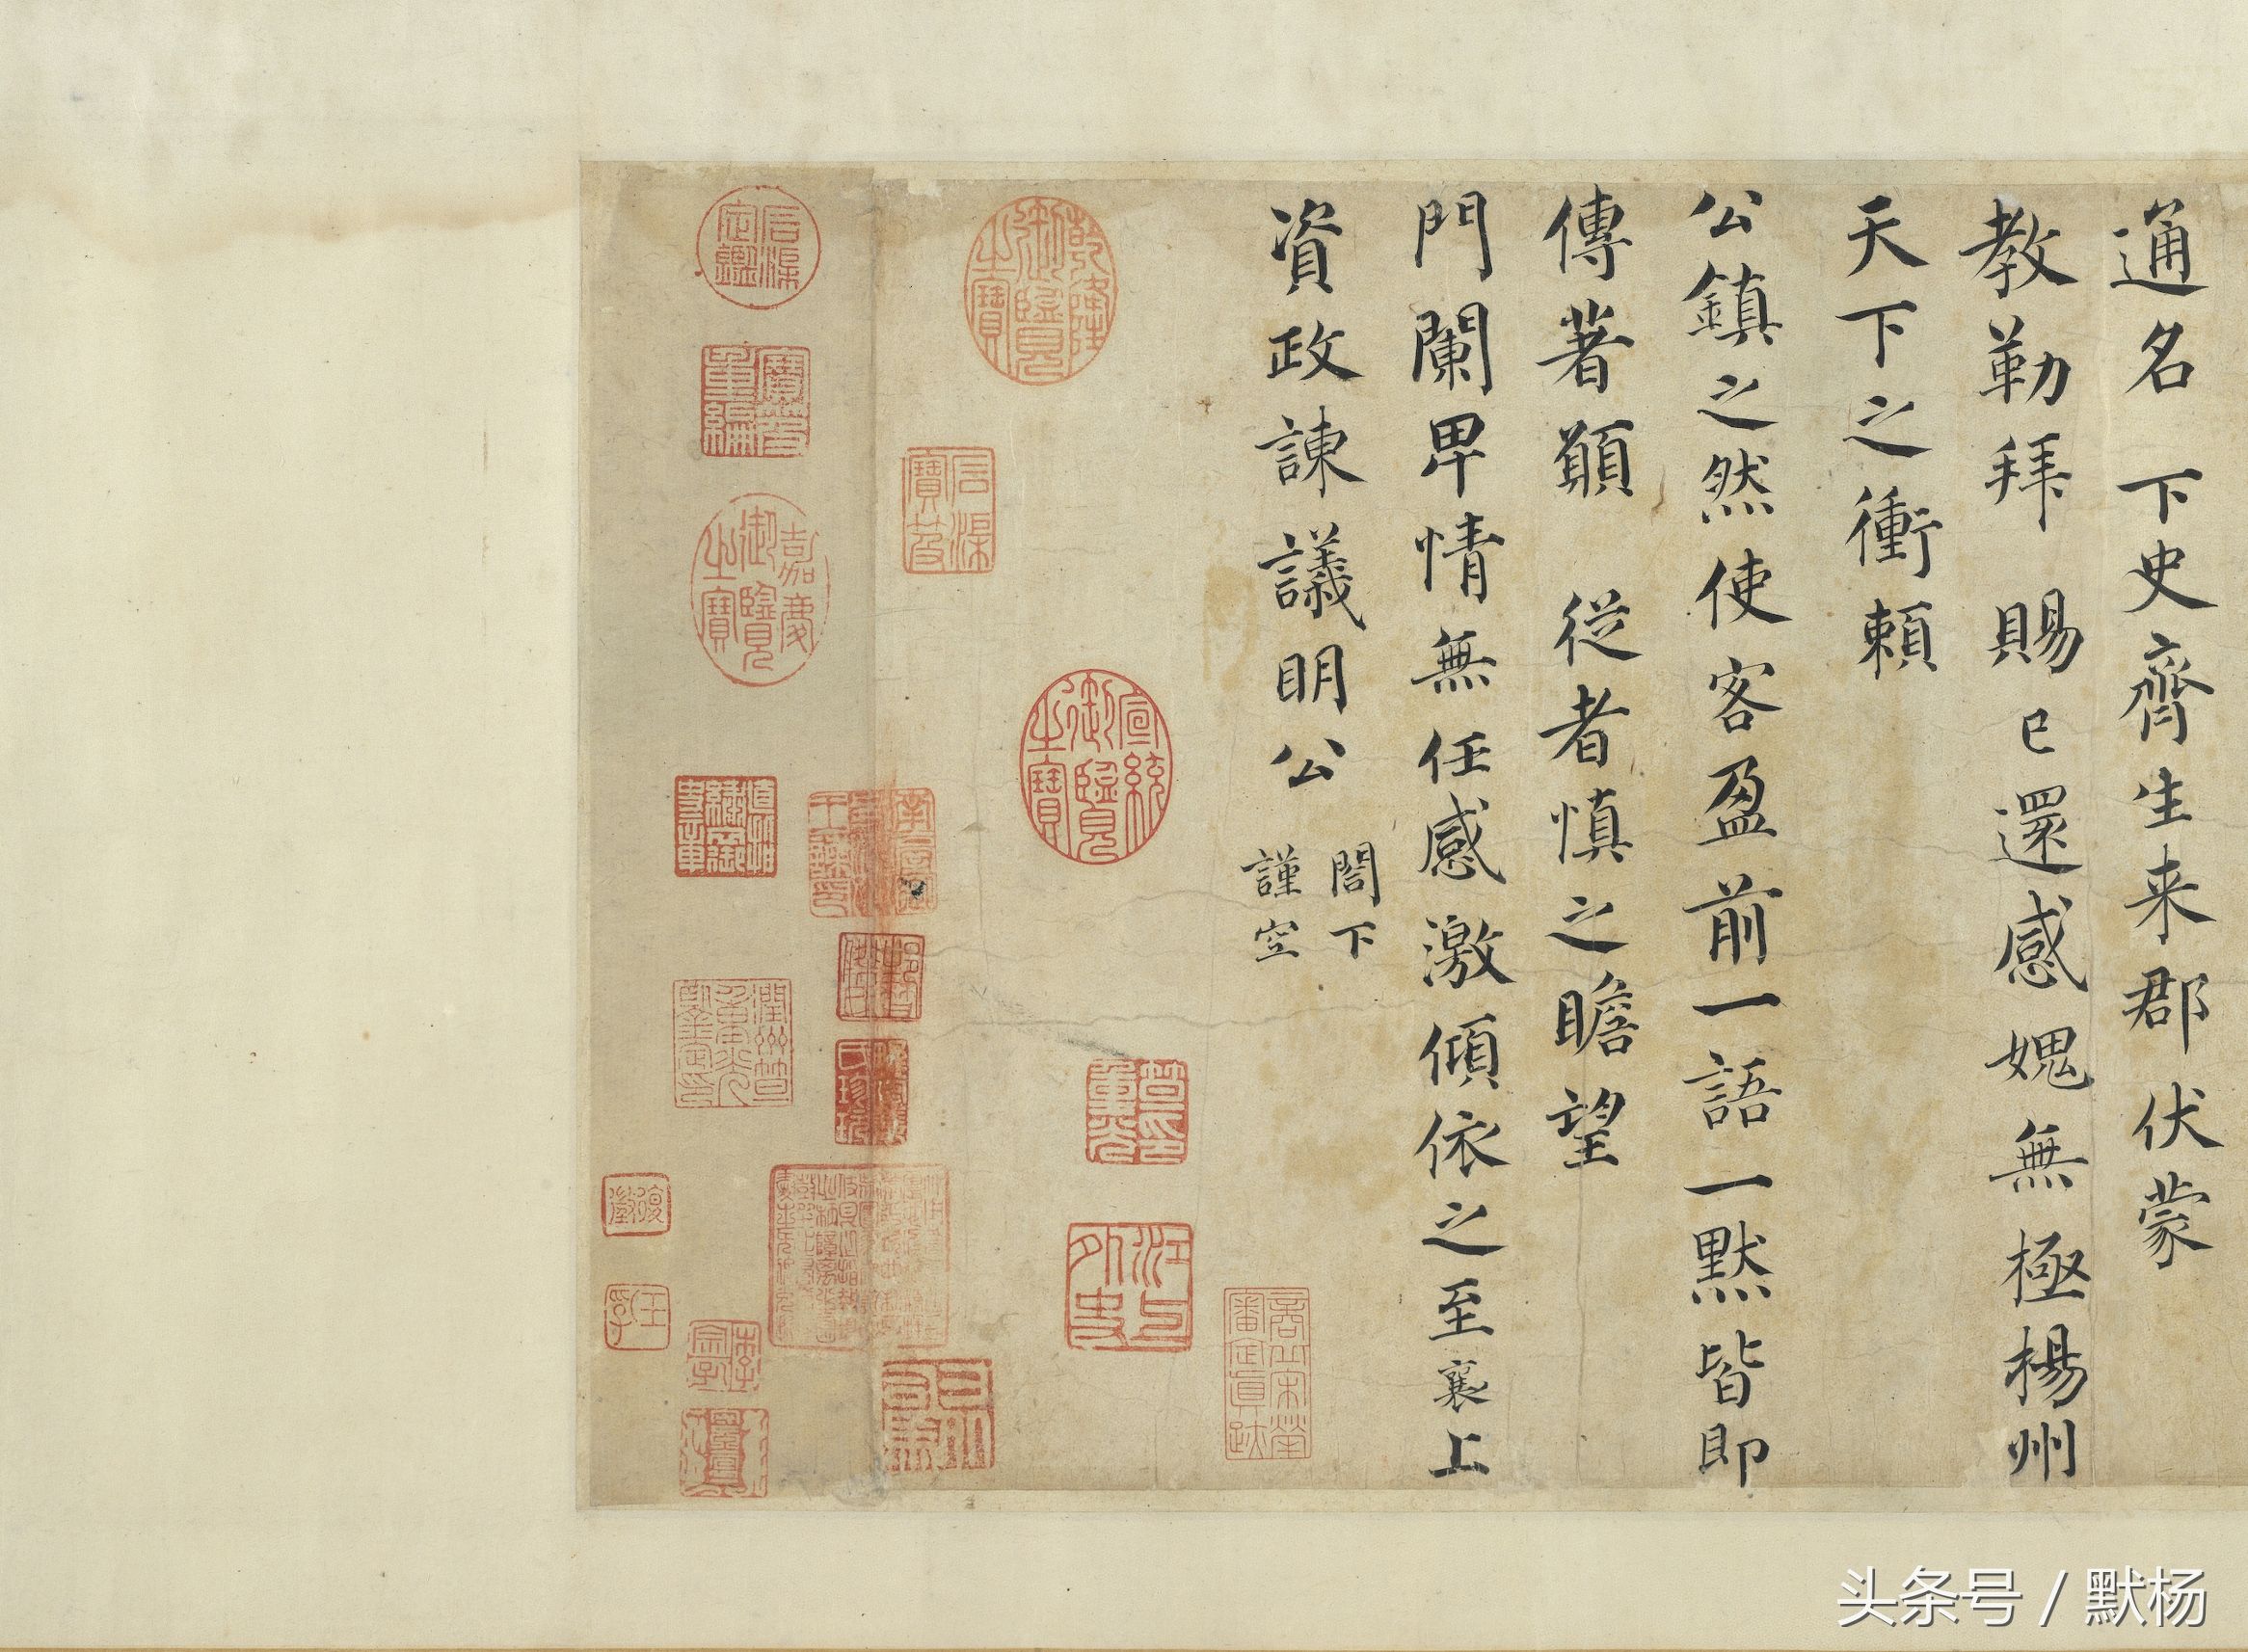 通名 下史齊生来郡伏蒙
教勒拜 賜已還感媿無極楊州
天下之衝賴
公鎮之然使客盈前一語一默皆即
傳著顓 從者慎之瞻望
門闌卑情無任感激傾依之至襄上
資政諫議明公
閤下
謹空
乾隆御覽之寶
石渠寶笈
宣統御覽之寶
石渠定鑑
寶笈重編
嘉慶御覽之寶
江上外史
笪重光印
頭条号 / 默杨